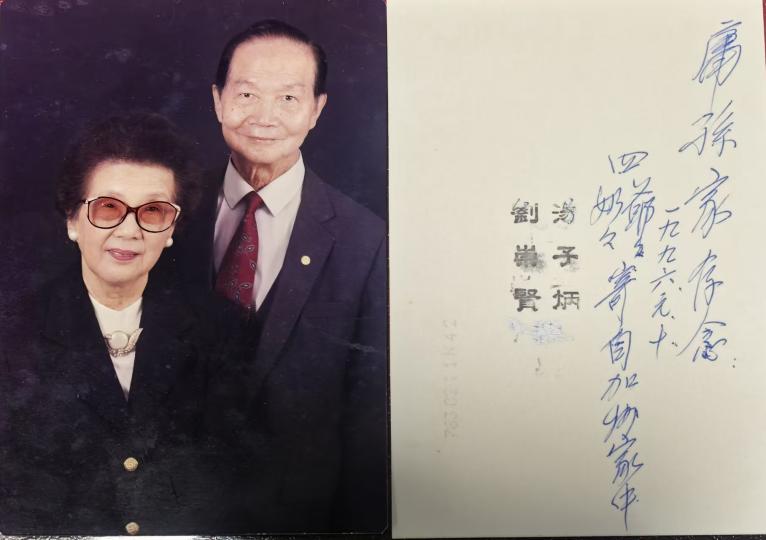 庸孫家存念
一九九六.元.十.
四爺々
奶々
寄自加州家中
湯子炳
劉崇賢